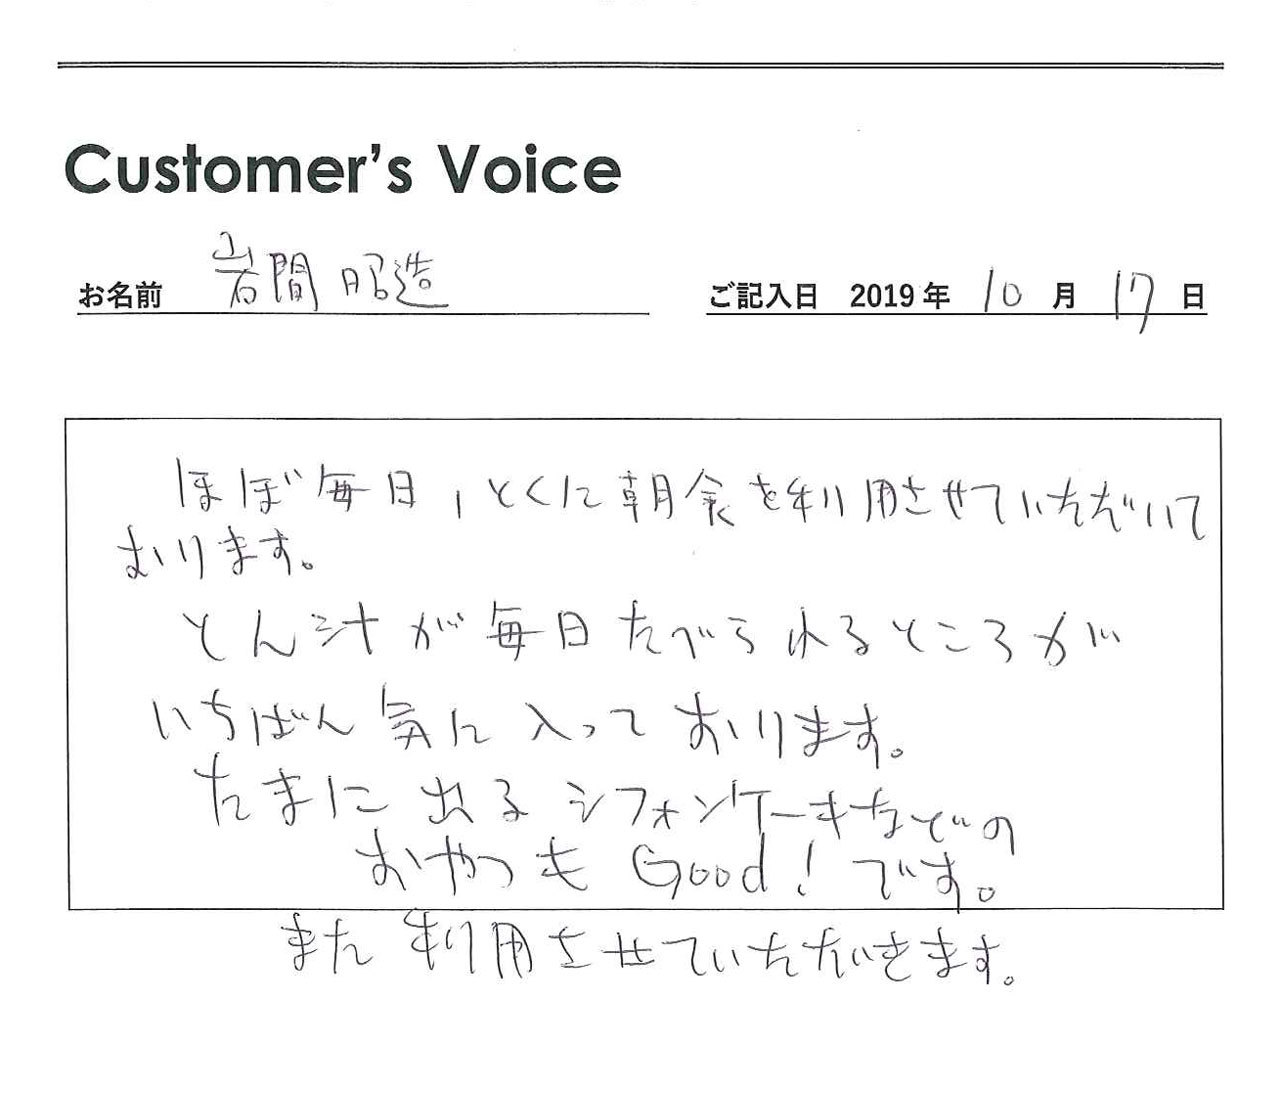 Customer's Voice
お名前 岩間昭造 ご記入日 2019年 10月 17日
ほぼ毎日,とくに朝食を利用させていただいて
おります。
とん汁が毎日たべられるところが
いちばん気に入っております。
たまに出るシフォンケーキなどの
おやつもGood!です。
また利用させていただきます。